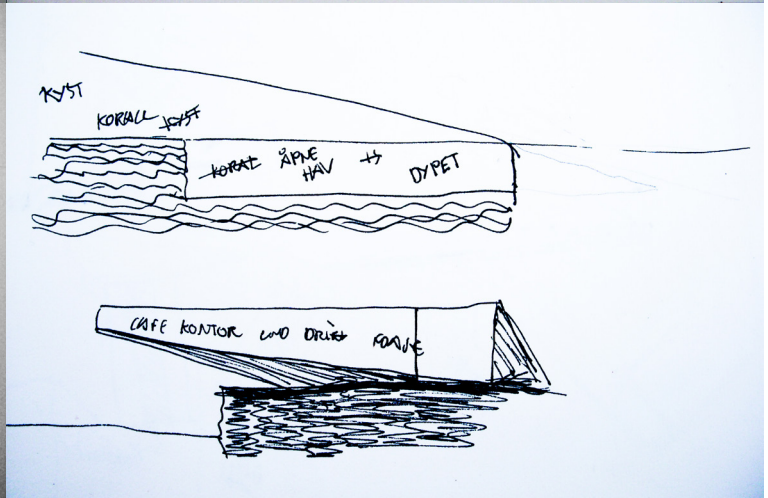 KYST
KORALL KYST
KORAL ÅPNE HAV → DYPET
CAFE KONTOR UND DRIFT